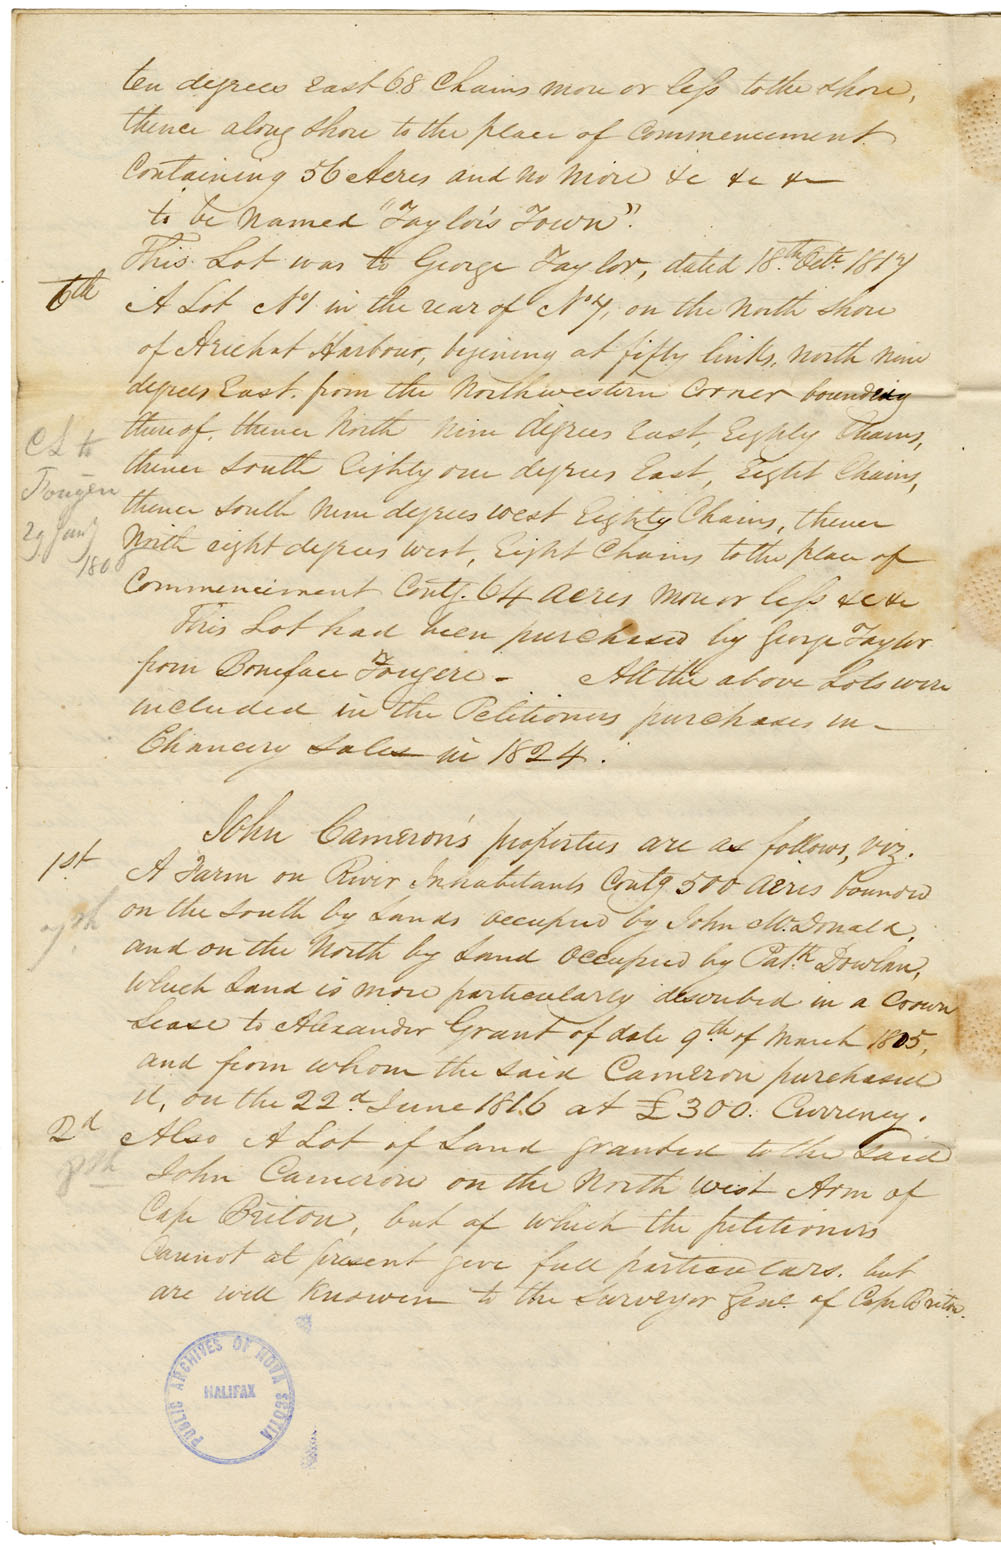 ten degrees East 68 Chains more or less to the shore,
thence along shore to the place of Commencement
Containing 56 Acres and no more &c &c &c
to be Named "Taylor's Town".
This Lot was to George Taylor, dated 18th Octr 1817
6th A Lot No 1 in the rear of No 7, on the North shore
of Arichat Harbour, begining at fifty links, North nine
degrees East from the Northwestern Corner bounding
thereof, thence North nine degrees East, Eighty Chains,
thence South Eighty one degrees East, Eight Chains,
thence South Nine degrees West Eighty Chains, thence
North eight degrees West, Eight Chains to the place of
Commencement Contg. 64 acres more or less &c &c
CL to
Fougere
29 Jany
180
This Lot had been purchased by George Taylor
from Boneface Fougere - All the above Lots were
included in the Petitioners purchases in
Chancery Sales in 1824.
John Cameron's properties are as follows, viz.
1st A Farm on River Inhabitants Contg 500 Acres bounded
7th on the South by Lands occupied by John McDonald,
and on the North by Land occupied by Patk Dowlan,
which Land is more particularly described in a Crown
Lease to Alexander Grant of date 9th of March 1805,
and from whom the said Cameron purchased
it, on the 22d June 1816 at £300. Currency.
2d Also A Lot of Land granted to the said
8th John Cameron on the North West Arm of
Cape Briton, but of which the petitioners
Cannot at present give full particulars. but
are well Knowen to the Surveyor Genl. of Cape Briton.
PUBLIC ARCHIVES OF NOVA SCOTIA
HALIFAX